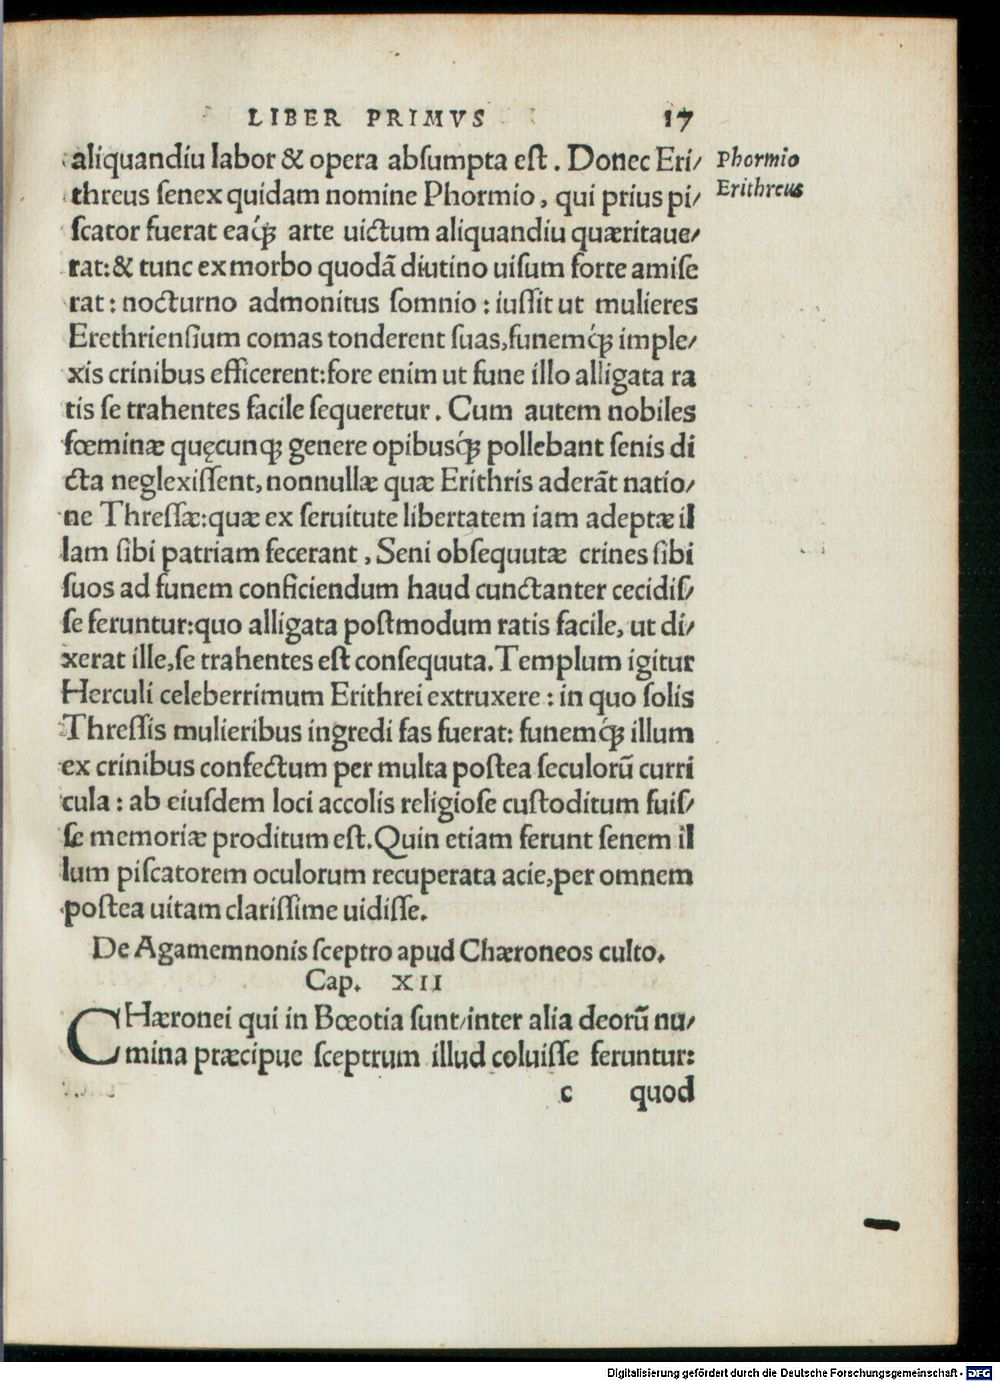 LIBER PRIMVS 17
aliquandiu labor & opera absumpta est. Donec Eri/
Phormio
Erithreus
threus senex quidam nomine Phormio, qui prius pi/
scator fuerat eaq́ꝫ arte uictum aliquandiu quæritaue/
rat: & tunc ex morbo quodã diutino uisum forte amise
rat: nocturno admonitus somnio: iussit ut mulieres
Erethriensium comas tonderent suas, funemq́ꝫ imple/
xis crinibus efficerent: fore enim ut fune illo alligata ra
tis se trahentes facile sequeretur. Cum autem nobiles
fœminæ quęcunqꝫ genere opibusq́ꝫ pollebant senis di
cta neglexissent, nonnullæ quæ Erithris aderãt natio/
ne Thressæ: quæ ex seruitute libertatem iam adeptæ il
lam sibi patriam fecerant, Seni obsequutæ crines sibi
suos ad funem conficiendum haud cunctanter cecidis/
se feruntur: quo alligata postmodum ratis facile, ut di/
xerat ille, se trahentes est consequuta. Templum igitur
Herculi celeberrimum Erithrei extruxere: in quo solis
Thressis mulieribus ingredi fas fuerat: funemq́ꝫ illum
ex crinibus confectum per multa postea seculorũ curri
cula: ab eiusdem loci accolis religiose custoditum fuis/
se memoriæ proditum est. Quin etiam ferunt senem il
lum piscatorem oculorum recuperata acie, per omnem
postea uitam clarissime uidisse.
De Agamemnonis sceptro apud Chæroneos culto.
Cap. XII
CHæronei qui in Bœotia sunt/inter alia deorũ nu/
mina præcipue sceptrum illud coluisse feruntur:
c quod
Digitalisierung gefördert durch die Deutsche Forschungsgemeinschaft - DFG